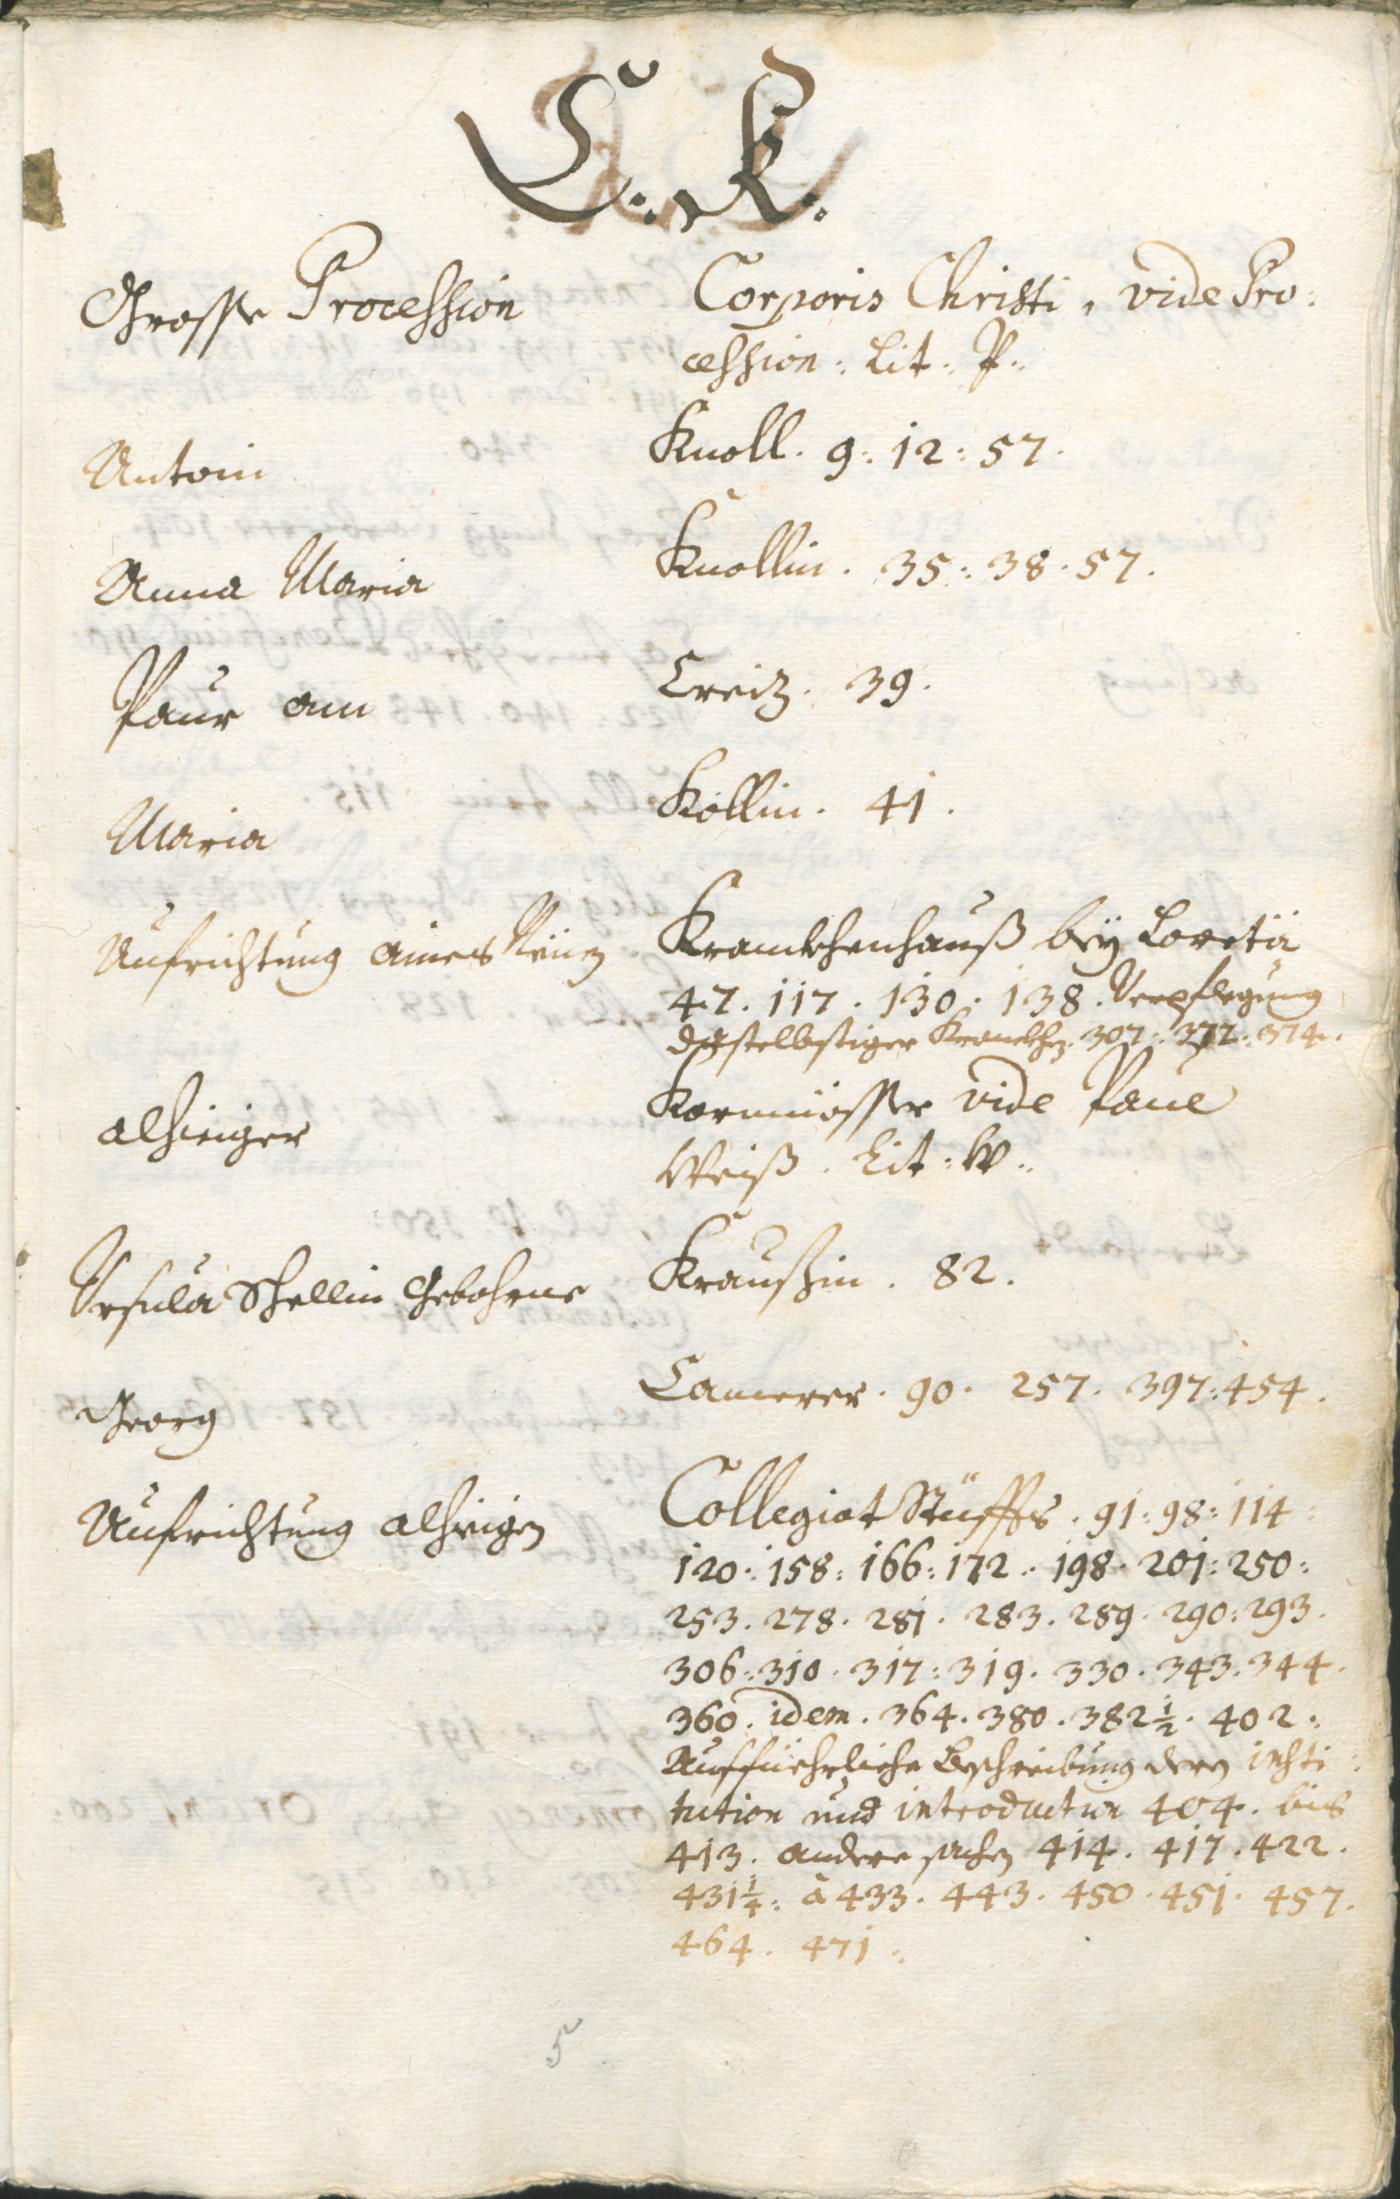 C: K:
Grosse Procession Corporis Christi, vide Pro:
cession: Lit: P:
Antoni Knoll. 9: 12: 57.
Anna Maria Knollin. 35: 38. 57.
Paur am Creitz. 39.
Maria Köllin. 41.
Aufrichtung aines Neuen Kranckhenhauß bey Loretä
47. 117. 130. 138. Verpflegung
daselbstiger Kranckhen. 307: 372: 374.
alhieiger Kornmösser vide Paul
Weiß. Lit: W:
Ursula Schellin Gebohrne Kraußin. 82.
Georg Camerer. 90. 257. 397: 454.
Aufrichtung alhieigen Collegiat Stüffts. 91: 98: 114:
120: 158: 166: 172. 198. 201: 250:
253. 278. 281. 283. 289. 290: 293.
306: 310. 317: 319. 330. 343. 344.
360. idem. 364. 380. 382 1/2. 402:
Ausführliche Beschreibung deren insti:
tution und introduction 404. bis
413. andere sachen 414. 417. 422.
431 1/4: à 433. 443. 450. 451. 457.
464. 471:
5